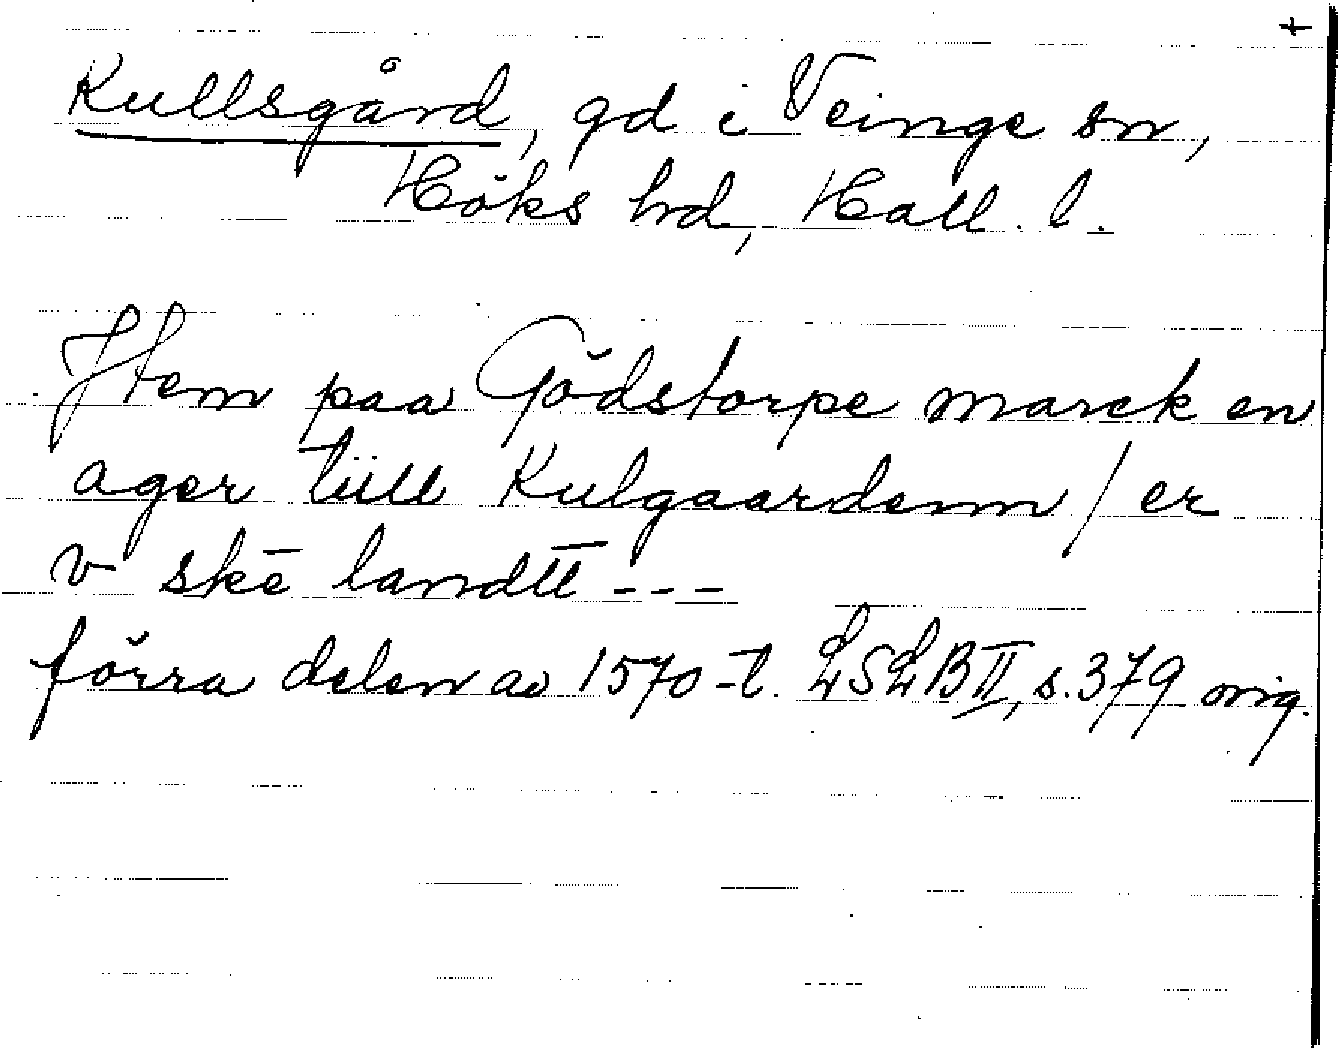 +
Kullsgård, gd i Veinge sn,
Höks hd, Hall. l.
Item paa Gödstorpe marck en
ager tiill Kulgaardenn / er
v skē landtt ---
förra delen av 1570-t. LSLB II, s. 379 orig.